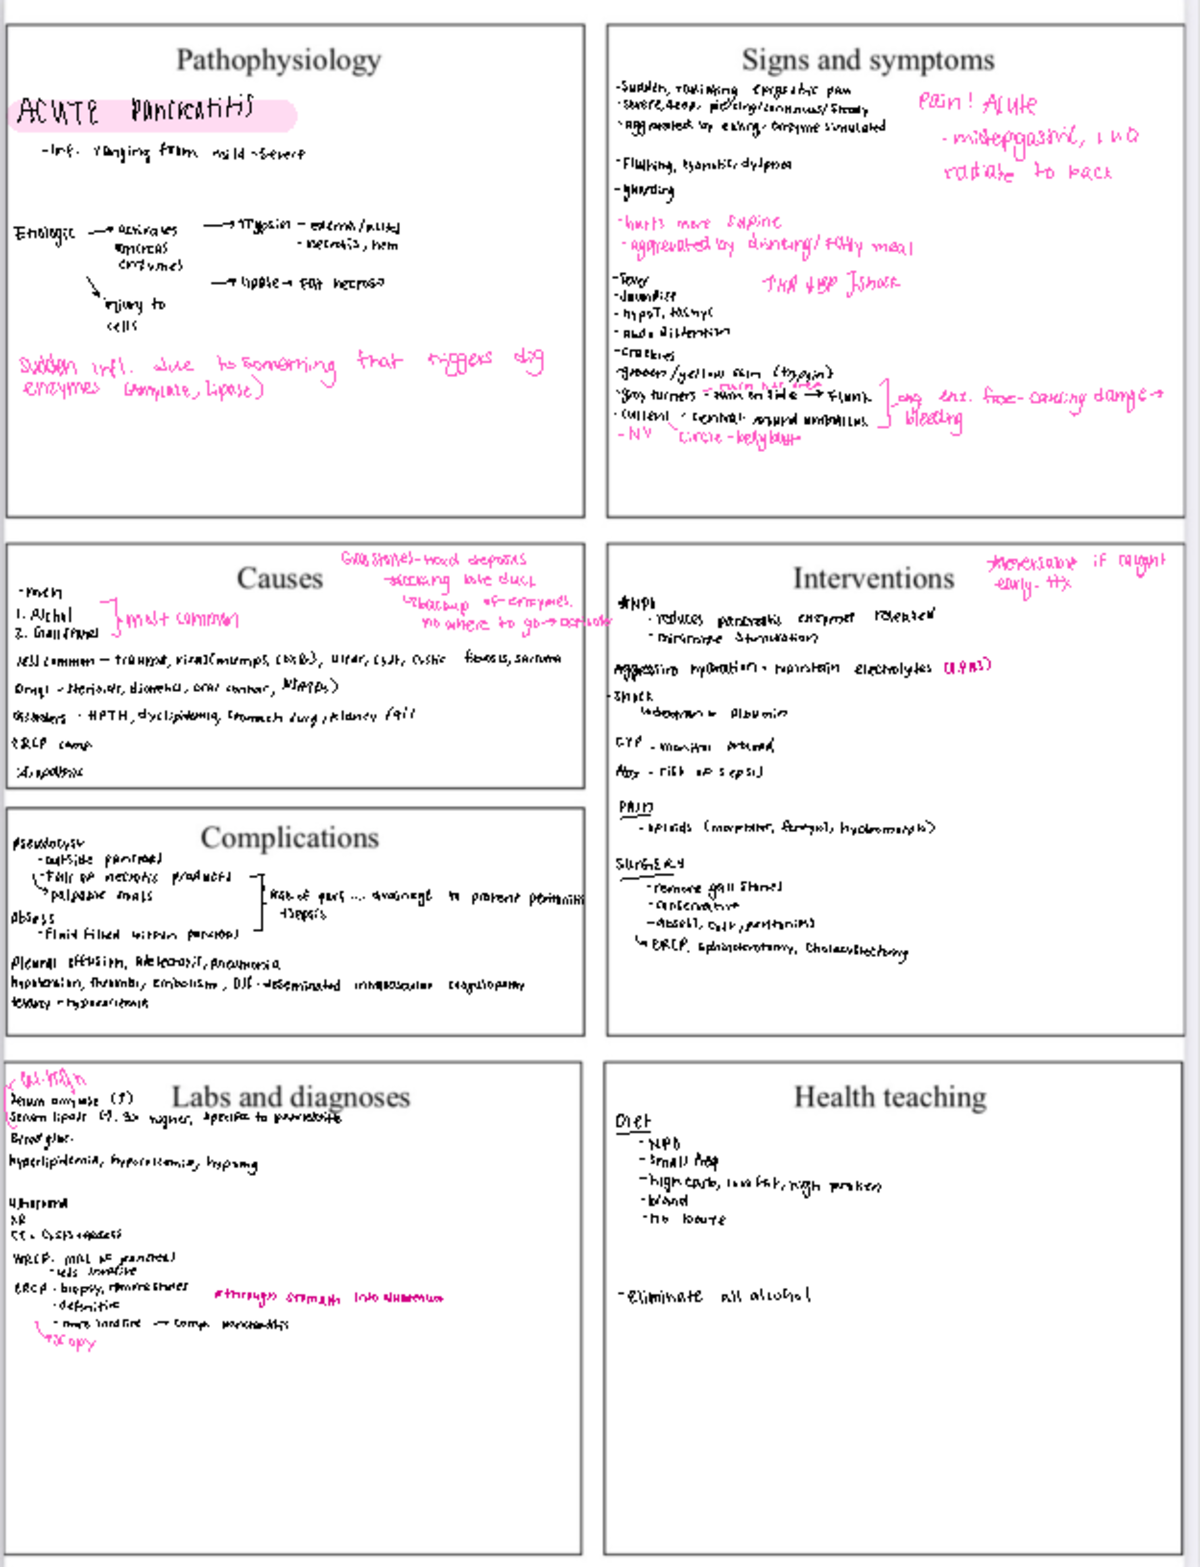 Pathophysiology
ACUTE Pancreatitis
-Inf. ranging from mild-severe
Etiologic → activates pancreas enzymes
→ Trypsin - edema/
- necrosis, hem
→ Lipase → Fat necrosis
injury to cells
Sudden infl. due to something that triggers dig
enzymes (amylase, lipase)
Signs and symptoms
-Sudden, radiating epigastric pain
-severe, deep, piercing/continuous/steady
-aggravated by eating- enzyme stimulated
-Flushing, cyanotic, dyspnea
-guarding
Pain! Acute
-midepigastric, LUQ
radiate to back
-hurts more supine
-aggrevated by drinking/fatty meal
-fever
-Jaundice
-hypoT, tachyc
-abdo distention
-crackles
↑HR ↓BP ] shock
-green/yellow (trypsin)
-grey turners - on side → Flank
-cullens - central around umbilicus
-NV circle-bellybutt
enz. free- causing damage →
bleeding
Causes
Gallstones-hard deposits
→ blocking bile duct
↳ backup of enzymes.
no where to go → activate
-men
1. Alchol
2. Gallstones
] most common
less common - trauma, viral (mumps, ), ulcer, cyst, cystic fibrosis,
Drugs - steriods, diuretics, oral contrac, NSAIDs)
disorders - HPTH, dyslipidemia, stomach surg, kidney fail
ERCP comp
idiopathic
Interventions
reversable if caught
early- ttx
*NPO
-reduces pancreatic enzymes released
-minimize stimulation
Aggressive hydration - maintain electrolytes (LRNS)
-shock
albumin
CVP - monitor
Abx - risk of sepsis
PAIN
-opioids (morphine, fentanyl, hydromorph)
SURGERY
-remove gall stones
-conservative
-abscess, cyst, peritonitis
↳ ERCP, sphincterotomy, cholecystectomy
Complications
Pseudocyst
-outside pancreas
-full of necrotic products
↳ palpable mass
Abscess
-fluid filled within pancreas
Risk of perf ... drainage to prevent peritonitis
+sepsis
pleural effusion, Atelectasis, pneumonia
hypotension, thrombi, embolism, DIC - desseminated intravascular coagulopathy
tetany - hypocalcemia
Labs and diagnoses
Serum amylase (↑)
Serum lipase (↑. 3x higher, specific to pancreatitis
Blood gluc.
hyperlipidemia, hypocalcemia, hypomg
Ultrasound
XR
CT - cysts + abscess
MRCP- MRI of pancreas
-less invasive
ERCP - biopsy, remove stones
-definitive
-more invasive → comp. pancreatitis
↳ scopy
*through stomach into duodenum
Health teaching
Diet
-NPO
-small freq
-high carb, low fat, high protein
-bland
-eliminate all alcohol